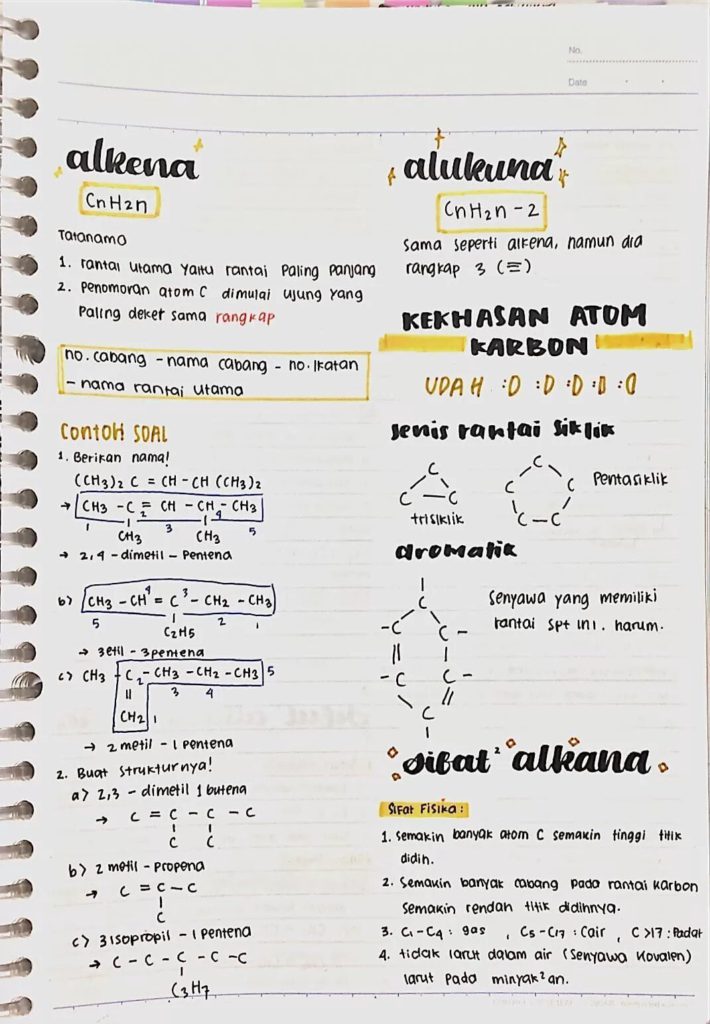 No.
Date
alkena
CnH2n
Tatanama
1. rantai utama yaitu rantai paling panjang
2. Penomoran atom C dimulai ujung yang
paling deket sama rangkap
no. cabang - nama cabang - no. Ikatan
- nama rantai utama
Contoh SOAL
1. Berikan nama!
(CH3)2 C = CH - CH (CH3)2
→ CH3 - C = CH - CH - CH3
1 2 3 4 5
CH3 CH3
→ 2,4 - dimetil - Pentena
b) CH3 - CH = C - CH2 - CH3
5 4 3 2 1
C2H5
→ 3etil - 3pentena
c) CH3 - C - CH3 - CH2 - CH3
2 3 4 5
CH2 1
→ 2 metil - 1 pentena
2. Buat strukturnya!
a) 2,3 - dimetil 1 butena
→ C = C - C - C
C C
b) 2 metil - propena
→ C = C - C
C
c) 3 isopropil - 1 pentena
→ C - C - C - C - C
C3H7
alukuna
CnH2n - 2
sama seperti alkena, namun dia
rangkap 3 (≡)
KEKHASAN ATOM
KARBON
UDAH :D :D :D :D :D
Jenis rantai siklik
C
C - C
trisiklik
C
C C
C - C
Pentasiklik
aromatik
C
- C C -
- C C -
C
Senyawa yang memiliki
rantai spt ini. harum.
sifat ² alkana
Sifat Fisika :
1. semakin banyak atom C semakin tinggi titik
didih.
2. Semakin banyak cabang pada rantai karbon
semakin rendah titik didihnya.
3. C1 - C4 : gas , C5 - C17 : Cair , C >17 : Padat
4. tidak larut dalam air (senyawa kovalen)
larut pada minyak²an.